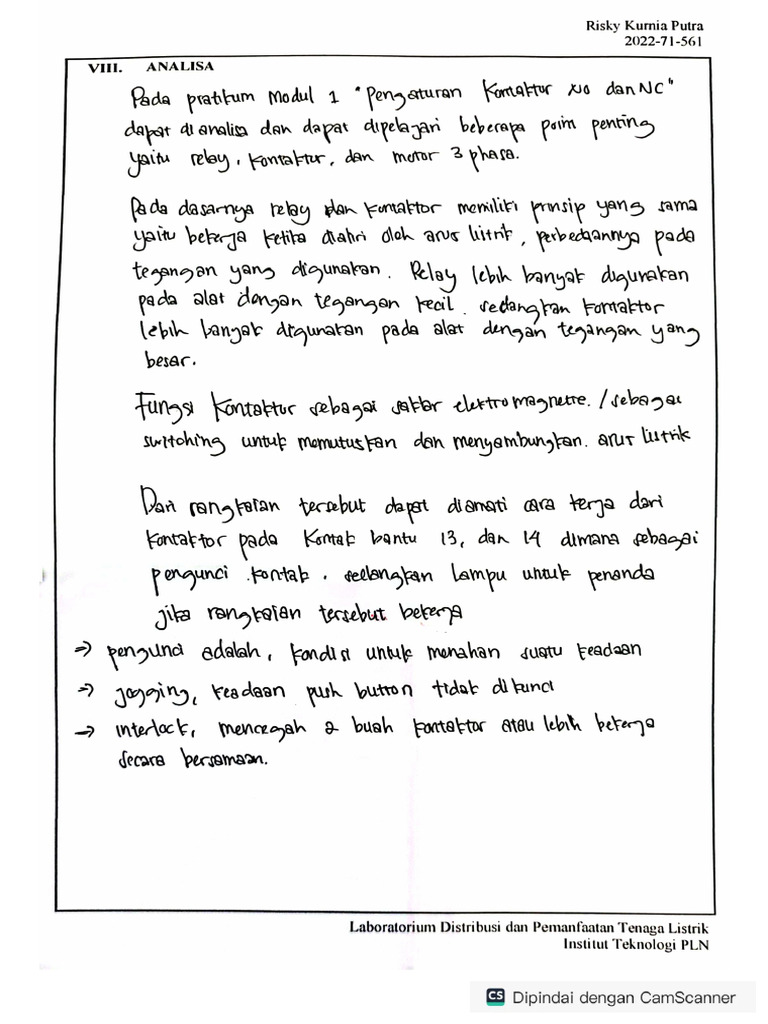 Risky Kurnia Putra
2022-71-561
VIII. ANALISA
Pada pratikum Modul 1 "Pengaturan Kontaktor NO dan NC"
dapat di analisa dan dapat dipelajari beberapa poim penting
yaitu relay, kontaktur, dan motor 3 phasa.
Pada dasarnya relay dan kontaktor memiliki prinsip yang sama
yaitu bekerja ketika dialiri oleh arus listrik, perbedaannya pada
tegangan yang digunakan. Relay lebih banyak digunakan
pada alat dengan tegangan kecil. sedangkan kontaktor
lebih banyak digunakan pada alat dengan tegangan yang
besar.
Fungsi Kontaktur sebagai saklar elektromagnetre. /sebagai
switching untuk memutuskan dan menyambungkan. arus listrik
Dari rangkaian tersebut dapat diamati cara kerja dari
kontaktor pada Kontak bantu 13, dan 14 dimana sebagai
pengunci kontak. sedangkan lampu untuk penanda
jika rangkaian tersebut bekerja
=> pengunci adalah, kondisi untuk menahan suatu keadaan
=> jogging, keadaan push button tidak dikunci
=> interlock, mencegah 2 buah kontaktor atau lebih bekerja
secara bersamaan.
Laboratorium Distribusi dan Pemanfaatan Tenaga Listrik
Institut Teknologi PLN
CS Dipindai dengan CamScanner